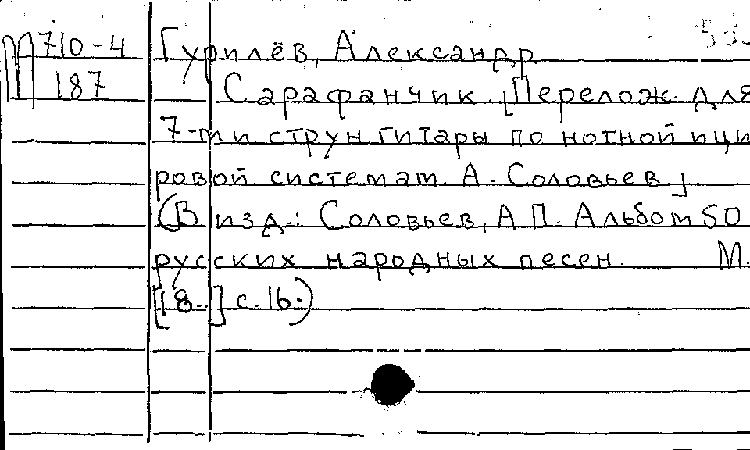 710-4 Гурилёв, Александр
187 Сарафанчик. [Перелож. для
7-ми струн гитары по нотной и ци
ровой системам А. Соловьев]
(В изд.: Соловьев, А П. Альбом 50
русских народных песен. М.
[18..] с. 16.)